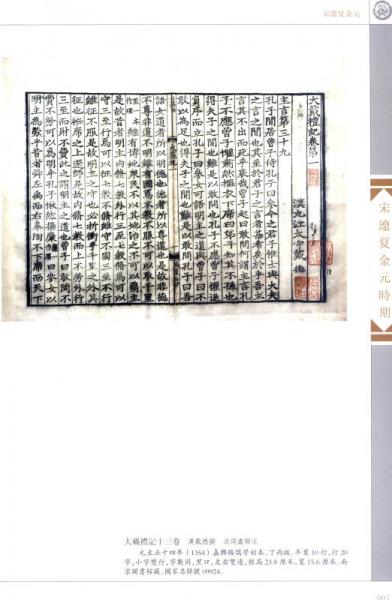 宋遼夏金元
宋遼夏金元時期
大戴禮記卷第一
漢九江太守戴德
主言第三十九
孔子閒居曾子侍孔子曰參今之君子惟士與大夫
之言之閒也其至於君子之言者甚希矣於乎吾主
言其不出而死乎哀哉曾子起曰敢問何謂主言孔
子不應曾子懼肅然摳衣下席曰弟子知其不孫也
得夫子之閒也難是以敢問也孔子不應曾子懼退
負序而立孔子曰參女可語明主之道與曾子曰不
敢以為足也得夫子之閒也難是以敢問孔子曰吾
語女道者所以明德也德者所以尊道也是故非德
不尊非道不明雖有國焉不教不服不可以取千里
雖有博地衆民不以其地治之不可以霸主
是故昔者明主内脩七教外行三至七教脩焉可以
守三至行焉可以征七教不脩雖守不固三至不行
雖征不服是故明主之守也必折衝乎千里之外其
征也衽席之上還師是故内脩七教而上不勞外行
三至而財不費此之謂明主之道也曾子曰敢問不
費不勞可以為明乎孔子愀然揚麋曰參女以
明主為勞乎昔者舜左禹而右皋陶不下席而天下
大戴禮記十三卷 漢戴德撰 北周盧辯注
元至正十四年（1354）嘉興路儒學刻本。丁丙跋。半葉10行，行20
字，小字雙行，字數同，黑口，左右雙邊。框高23.8厘米，寬15.6厘米。南
京圖書館藏。國家名錄號 09924。